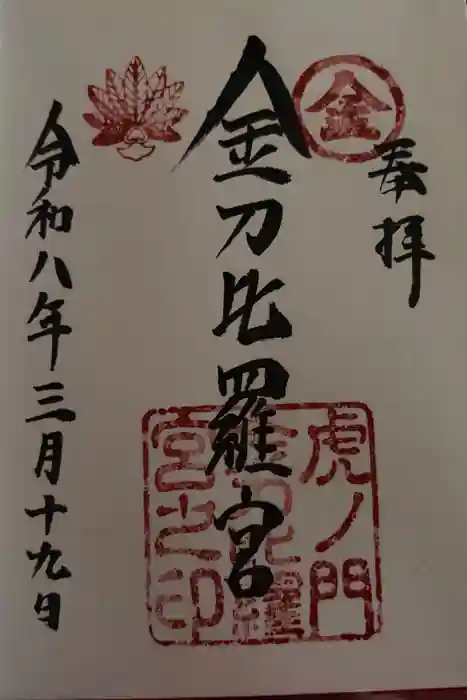 奉拝
金
金刀比羅宮
虎ノ門
金刀比羅
宮之印
令和八年三月十九日